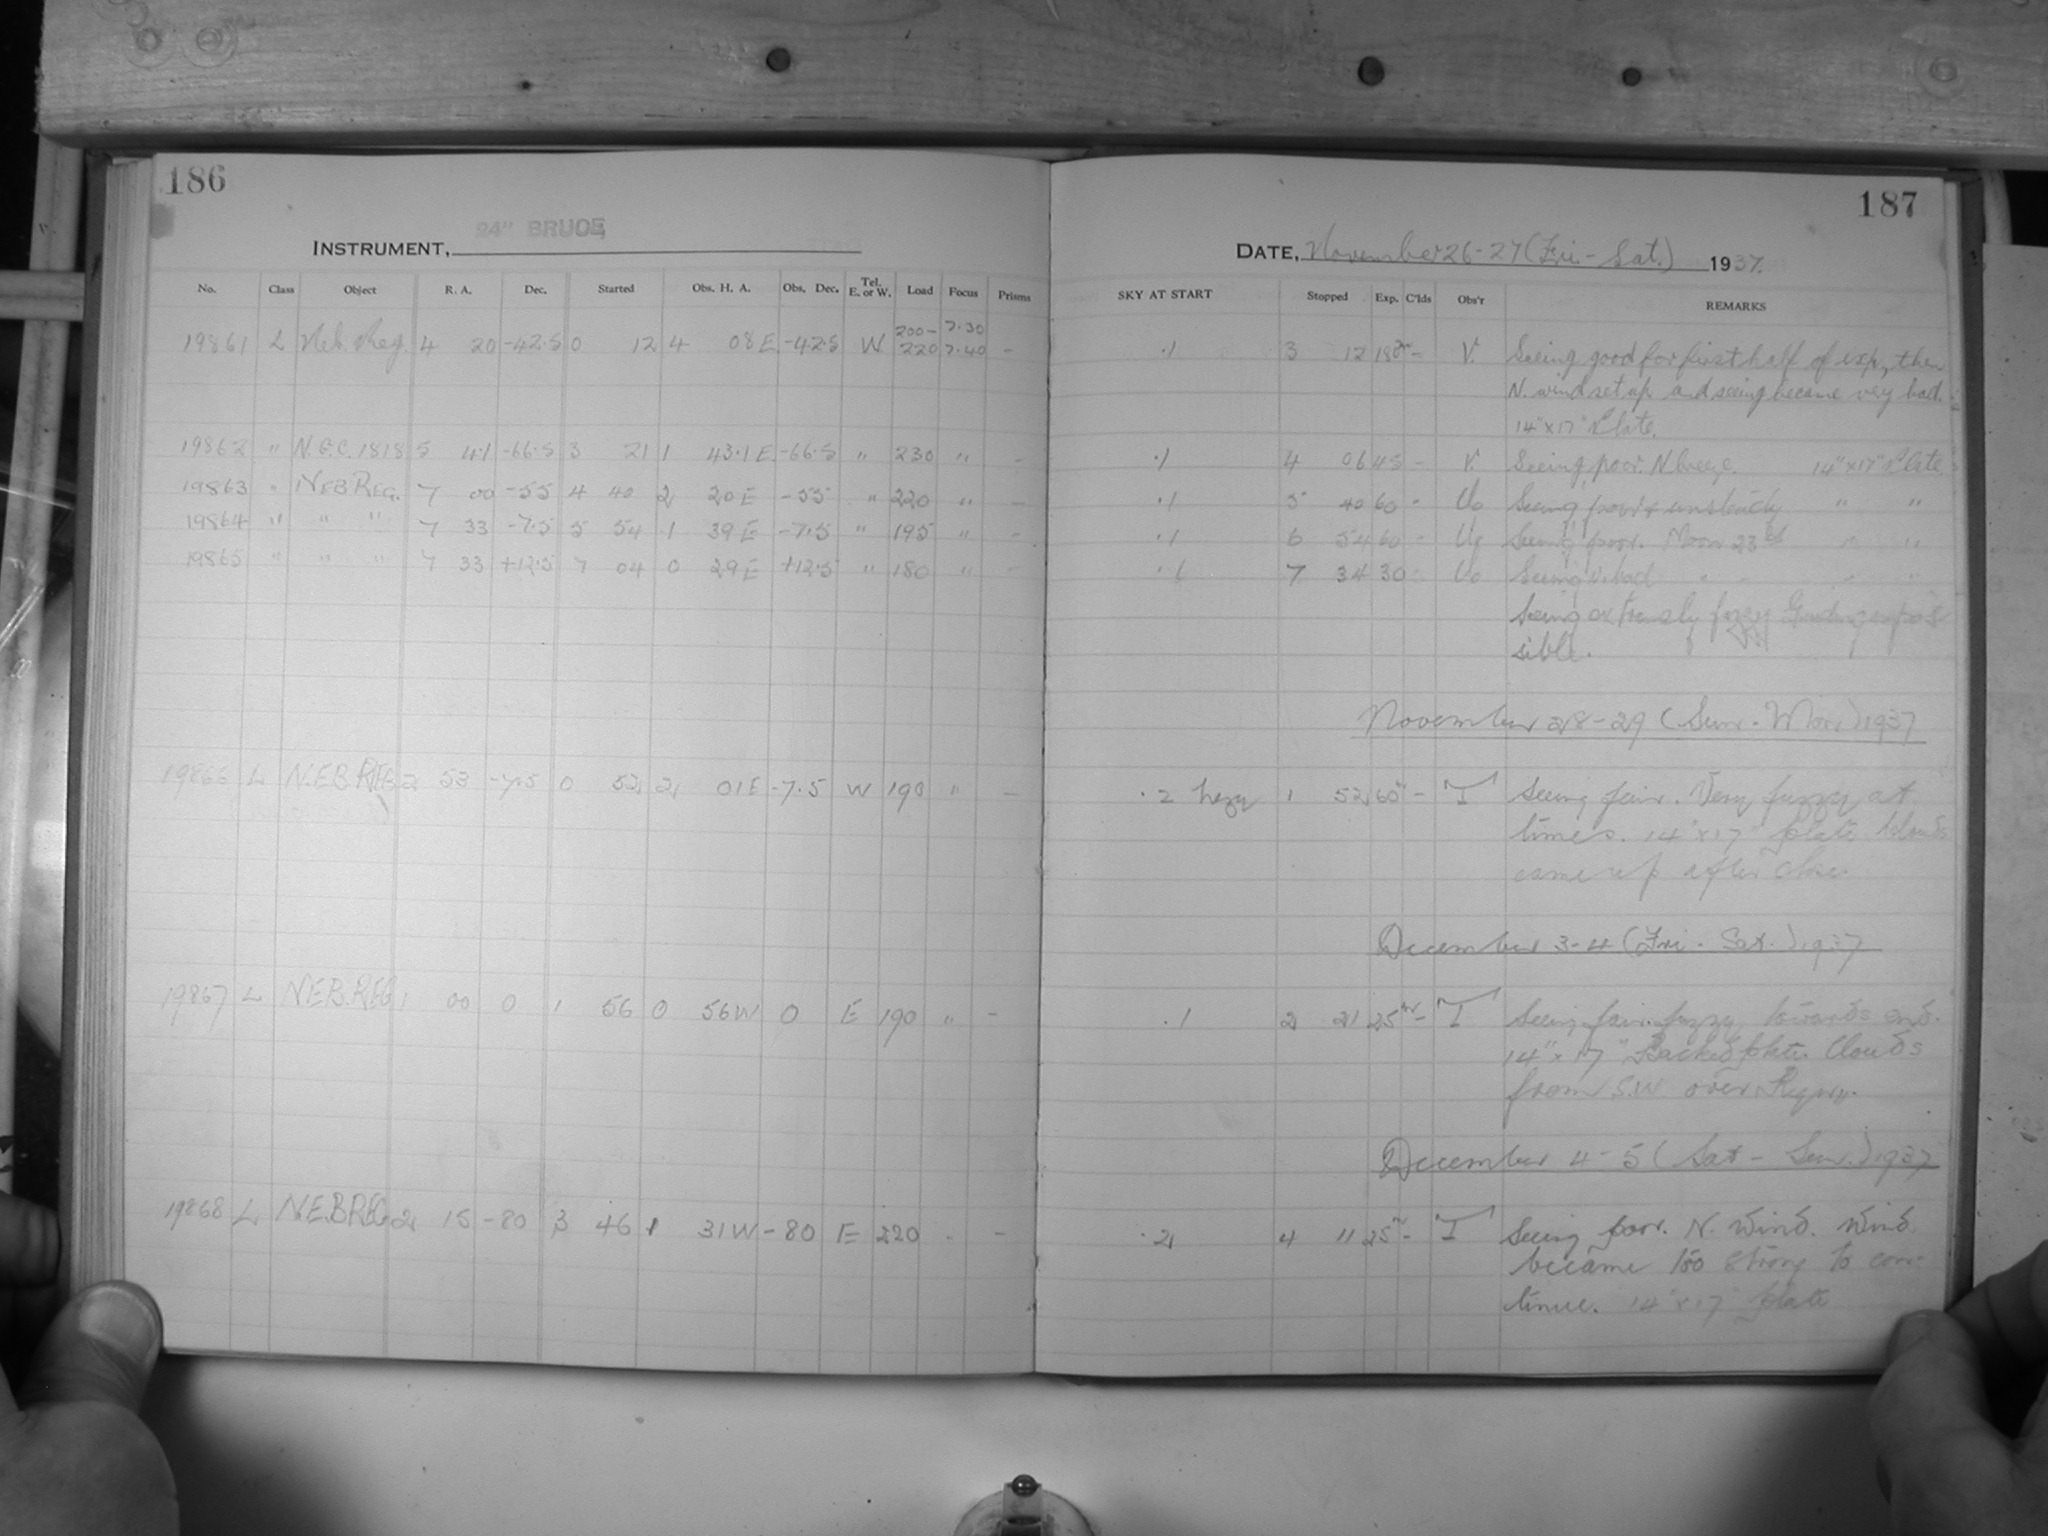 186
INSTRUMENT, 24" BRUCE
No. Class Object R. A. Dec. Started Obs. H. A. Obs. Dec. Tel. E. or W. Load Focus Prisms
19861 L Neb. Reg. 4 20 -42.5 0 12 4 08 E -42.5 W 200-220 7.30 7.40 -
19862 " N.G.C. 1818 5 41 -66.5 3 21 1 43.1 E -66.5 " 230 " -
19863 " NEB REG. 7 00 -55 4 40 2 20 E -55 " 220 " -
19864 " " " 7 33 -7.5 5 54 1 39 E -7.5 " 195 " -
19865 " " " 7 33 +12.5 7 04 0 29 E +12.5 " 180 " -
19866 L N.EB REG 2 53 -7.5 0 52 2 01 E -7.5 W 190 " -
19867 L NEB.REG 1 00 0 1 56 0 56 W 0 E 190 " -
19868 L N.E.B REG 2 15 -80 3 46 1 31 W -80 E 220 - -
187
DATE, November 26-27 (Fri - Sat.) 1937.
SKY AT START Stopped Exp. C'lds Obs'r REMARKS
.1 3 12 - V. Seeing good for first half of exp., then
N. wind set up and seeing became very bad.
14"x17" Plate.
.1 4 06 45 - V. Seeing poor. N. breeze. 14"x17" Plate
.1 5 40 60 - Uo Seeing poor & unsteady " "
.1 6 54 60 - Uo Seeing poor. Moon " "
.1 7 34 30 - Uo Seeing v. bad " - " "
Seeing extremely fuzzy Guiding impos
sible.
November 28-29 (Sun - Mon) 1937
.2 hazy 1 52 60 - T Seeing fair. Very fuzzy at
times. 14"x17" plate Clouds
came up after close
December 3-4 (Fri - Sat.) 1937
.1 2 21 25 - T Seeing fair. fuzzy towards end.
14"x17" Backed plate. Clouds
from S.W over Region.
December 4-5 (Sat - Sun.) 1937
.2 4 11 25 - T Seeing poor. N. Wind. Wind
became too strong to con-
tinue. 14"x17" plate